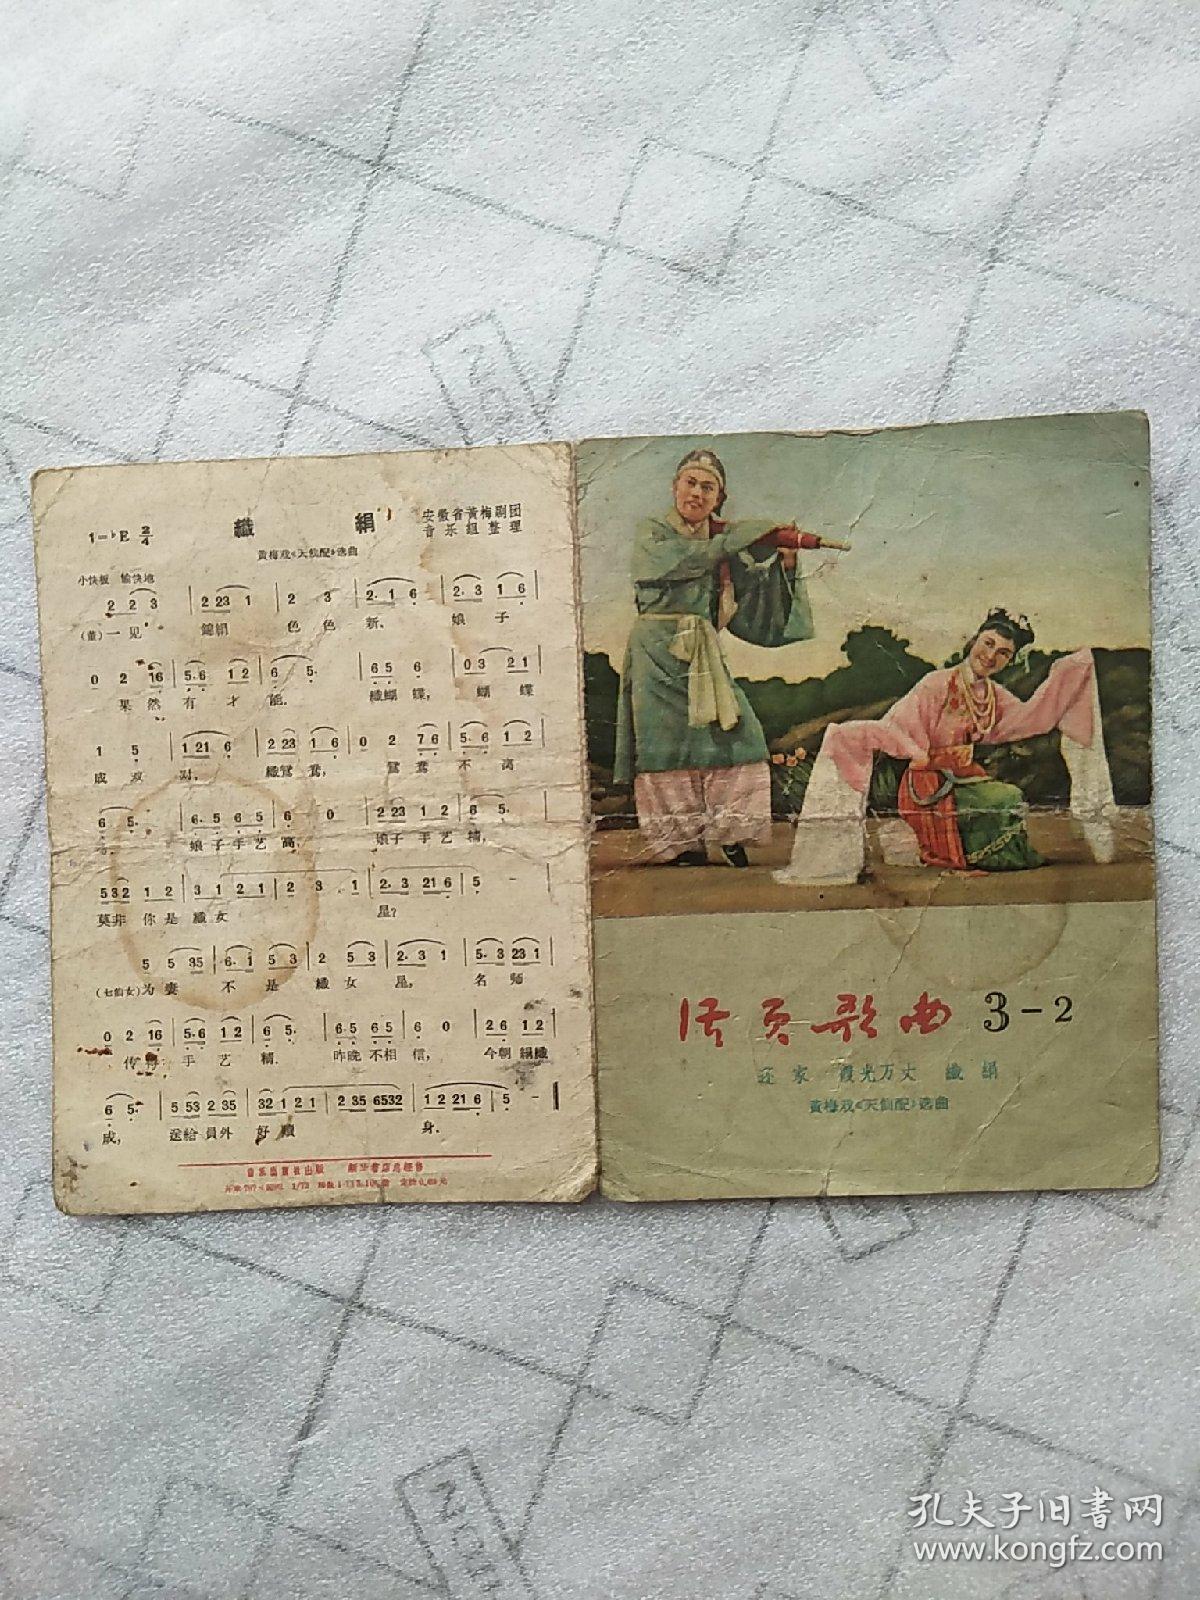 織 絹
1=♭E 2/4
安徽省黃梅剧团
音乐組整理
黃梅戏《天仙配》选曲
小快板 愉快地
2 2 3 | 2 23 1 | 2 3 | 2. 1 6 | 2. 3 1 6 |
(董)一見 錦絹 色 色 新， 娘 子
0 2 16 | 5.6 12 | 6 5. | 6 5 6 | 03 21 |
果然 有 才 能. 織蝴 蝶， 蝴 蝶
1 5 | 1 21 6 | 2 23 1 6 | 0 2 76 | 5. 6 1 2 |
成 双 对， 織鴛 鴦， 鴛鴦 不 离
6 5. | 6. 5 6 5 | 6 0 | 2 23 1 2 | 6 5. |
娘子 手 艺 高， 娘子 手艺 精，
532 1 2 | 3 1 2 1 | 2 3 1 | 2. 3 21 6 | 5 - |
莫非 你 是 織 女 星？
5 5 35 | 6. 1 5 3 | 2 5 3 | 2. 3 1 | 5. 3 23 1 |
(七仙女)为妻 不 是 織 女 星， 名 师
0 2 16 | 5.6 12 | 6 5. | 6 5 6 5 | 6 0 | 2 6 1 2 |
传得 手 艺 精. 昨晚 不相 信， 今朝 絹織
6 5. | 5 53 2 35 | 32 1 2 1 | 2 35 6532 | 1 2 21 6 | 5 - ‖
成， 送給 員外 好 贖 身.
音乐出版社出版 新华书店总經售
活頁歌曲 3-2
还家 霞光万丈 織絹
黃梅戏《天仙配》选曲
孔夫子旧書网
www.kongfz.com